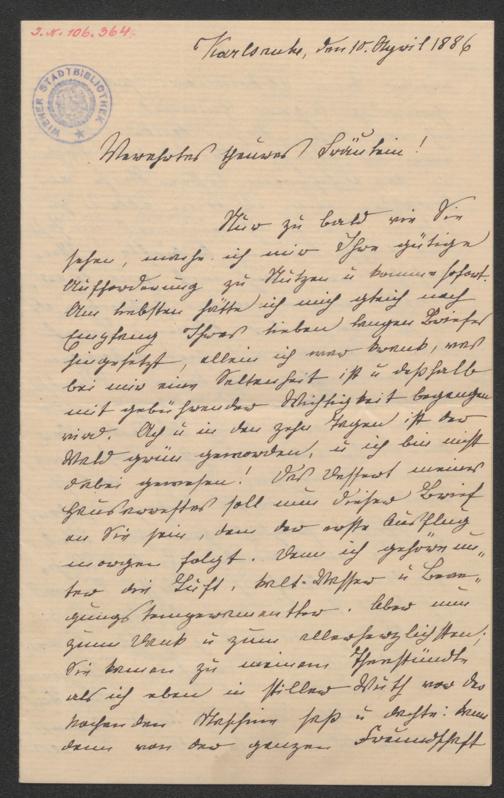 J. N. 106.364.
WIENER STADTBIBLIOTHEK
Karlsruhe, den 10. April 1886
Verehrtes theures Fräulein!
Nur zu bald wie Sie
sehen, mache ich mir Ihre gütige
Aufforderung zu Nutzen u komme sofort.
Am liebsten hätte ich mich gleich nach
Empfang Ihres lieben langen Briefes
hingesetzt, allein ich war krank, was
bei mir eine Seltenheit ist u deßhalb
mit gebührender Wichtigkeit begangen
wird. Ach, u in den zehn Tagen ist der
Wald grün geworden, u ich bin nicht
dabei gewesen! Das Dessert meines
Hausarrestes soll nun dieser Brief
an Sie sein, dem der erste Ausflug
morgen folgt. Denn ich gehöre un-
ter die Luft, kalt-Wasser u Bewe-
gungstemperamentler. Aber nun
zum Dank u zum allerherzlichsten;
Sie kamen zu meinem Theestündle
als ich eben in stiller Wuth vor der
kochenden Maschine saß u dachte: kann
denn von der ganzen Freundschaft